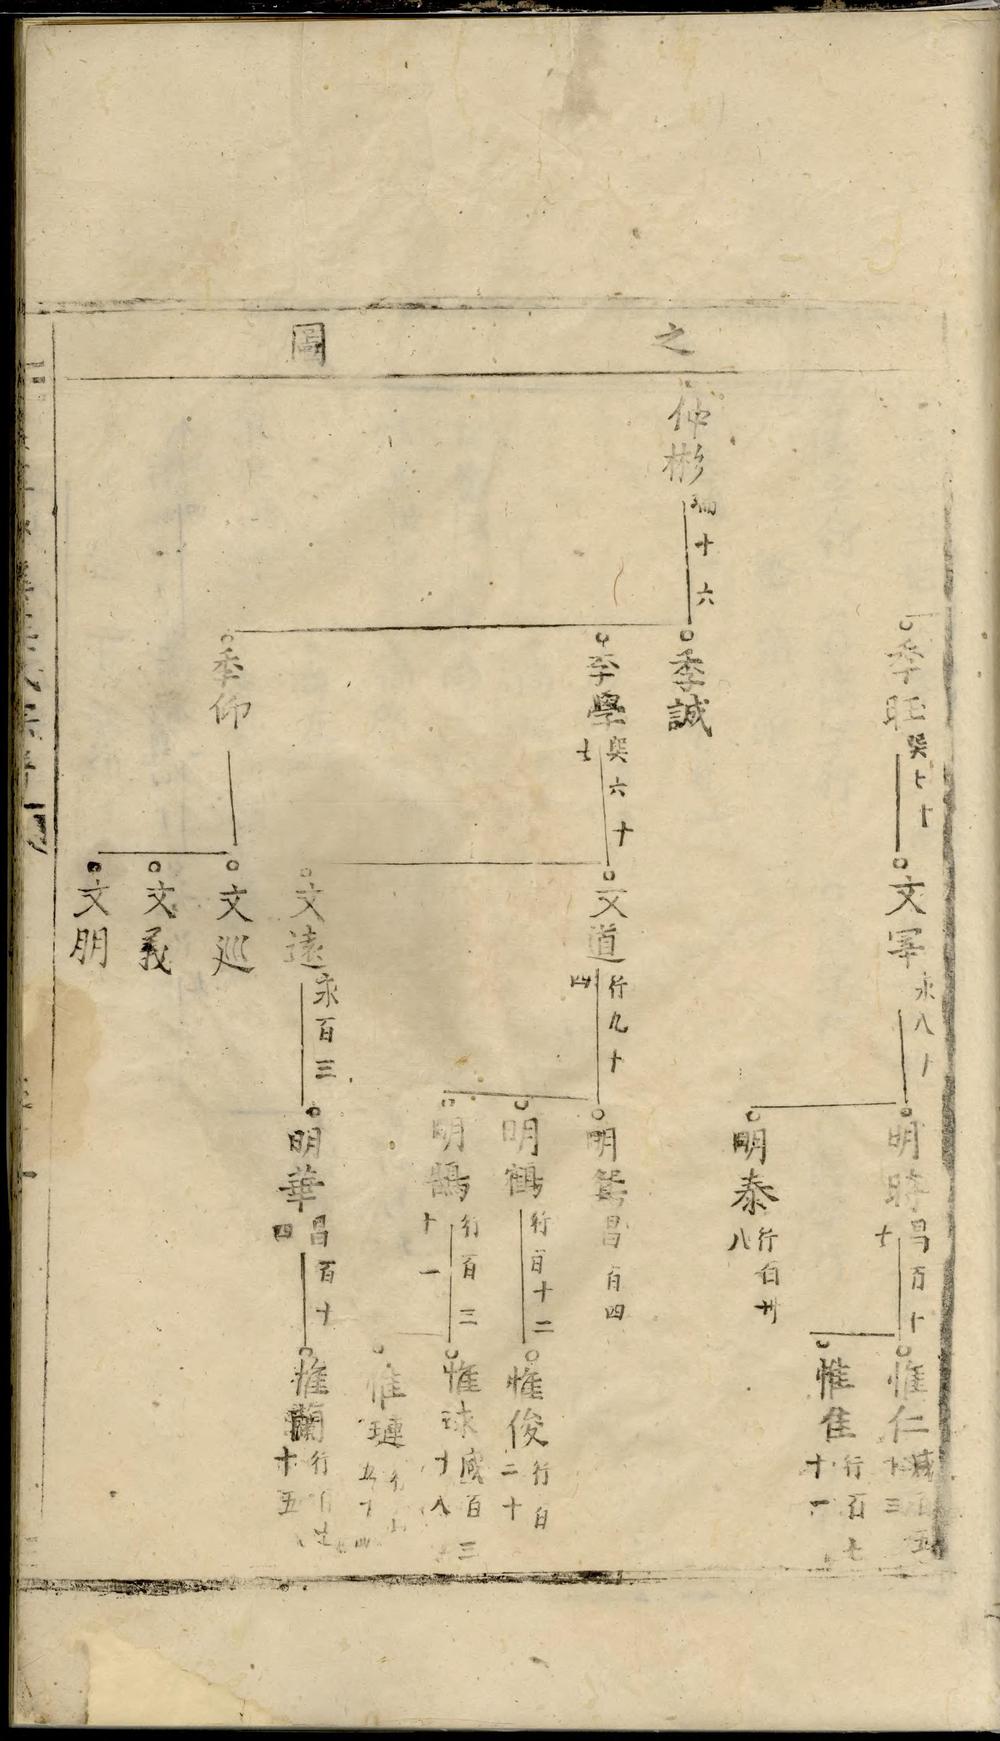 之
圖
仲彬
十六
季旺
癸七十
文宰
永八十
明時
昌百十七
明泰
行百卅八
惟仁
惟隹
行百七十一
季誠
季學
癸六十七
文道
行九十四
明鴛
昌百四
明鶴
行百十二
明鵠
行百三十一
惟俊
行百二十
惟球
咸百三十八
惟璉
文遠
永百三
明華
昌百十四
惟蘭
季仰
文巡
文義
文朋